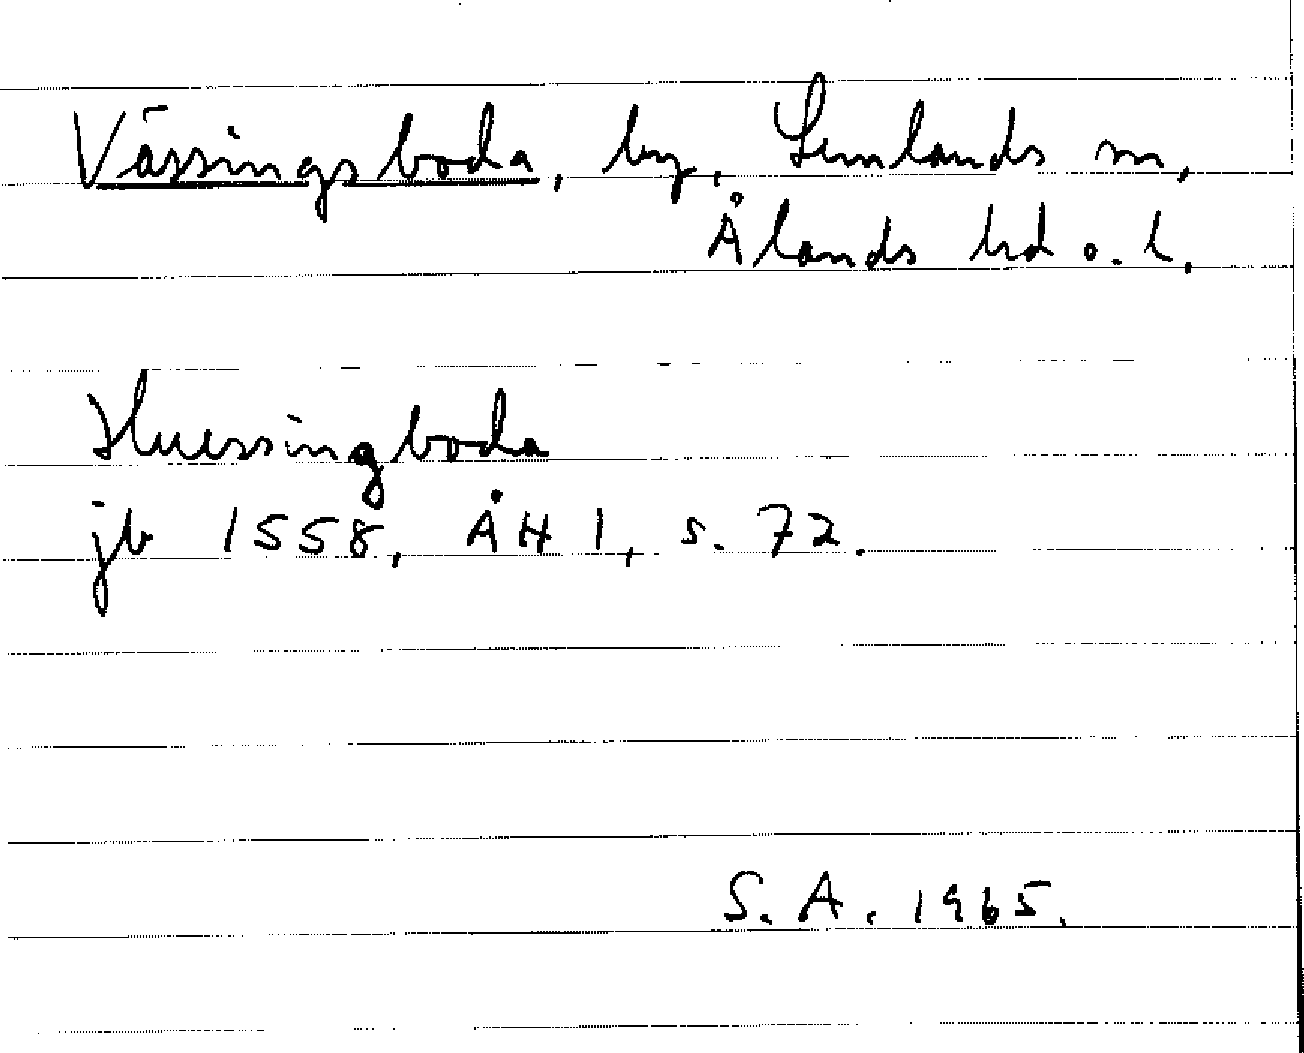 Vässingsboda, by, Lemlands sn,
Ålands hd o. l.
Huessingboda
jb 1558, ÅH 1, s. 72.
S. A. 1965.